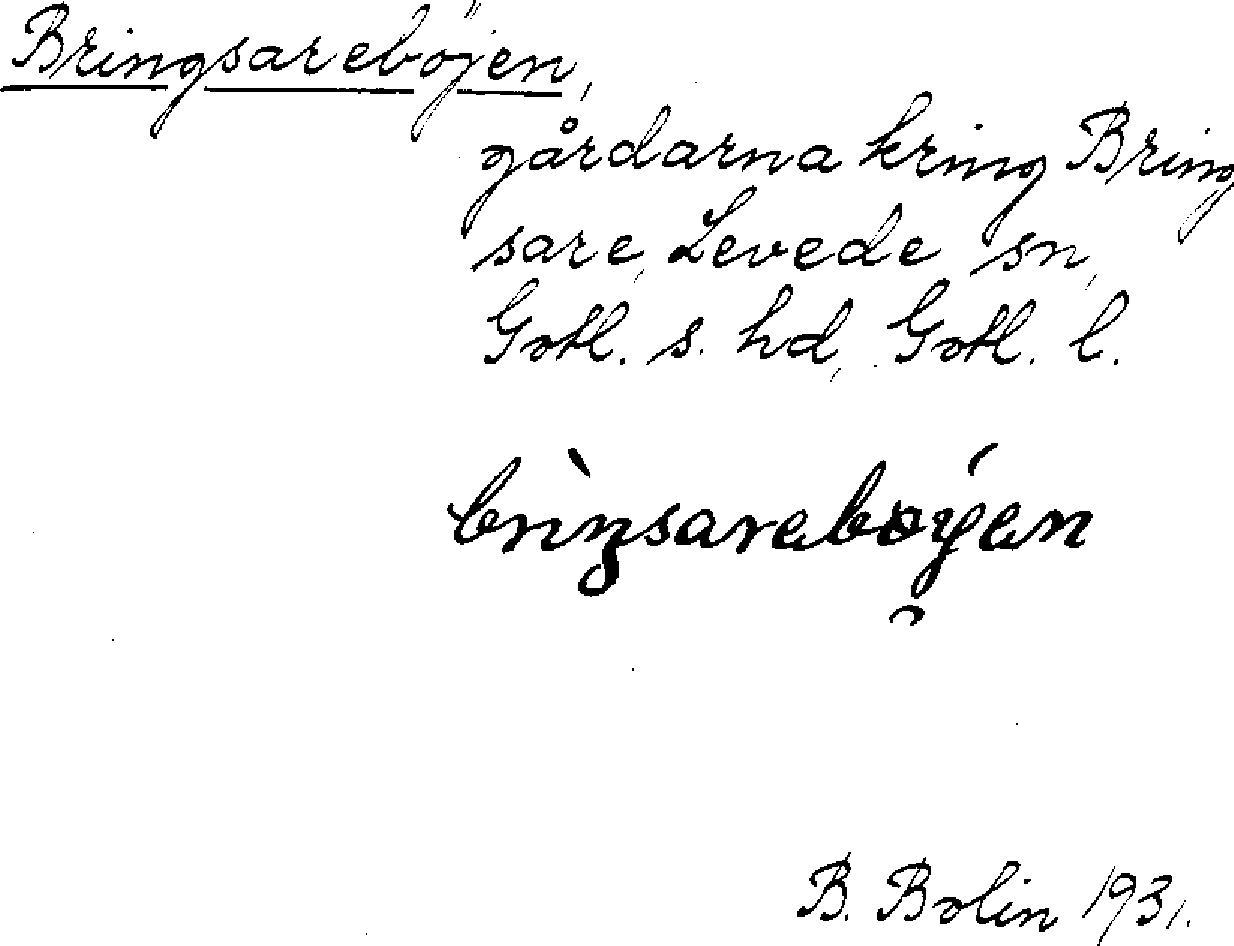 Bringsareböjen,
gårdarna kring Bring
sare, Levede sn,
Gotl. s. hd, Gotl. l.
brìŋsarebǿyen
B. Bolin 1931.